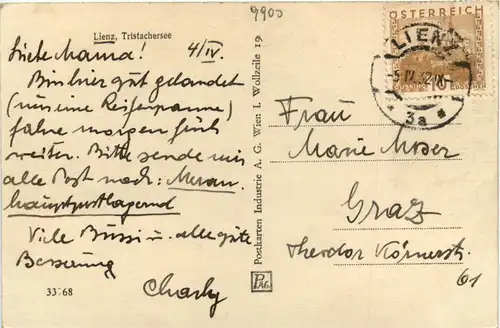 9900
Lienz, Tristachersee
4/IV.
Liebe Mama!
Bin hier gut gelandet
(nur eine Reifenpanne)
fahre morgen früh
weiter. Bitte sende mir
alle Post nach: Meran
hauptpostlagernd
Viele Bussi u. alles gute
Besserung
Charly
33768
Postkarten Industrie A. G. Wien I. Wollzeile 19.
PAG.
ÖSTERREICH
10
LIENZ
5.IV.
* 3a *
Frau
Marie Moser
Graz
Theodor Körnerstr.
61